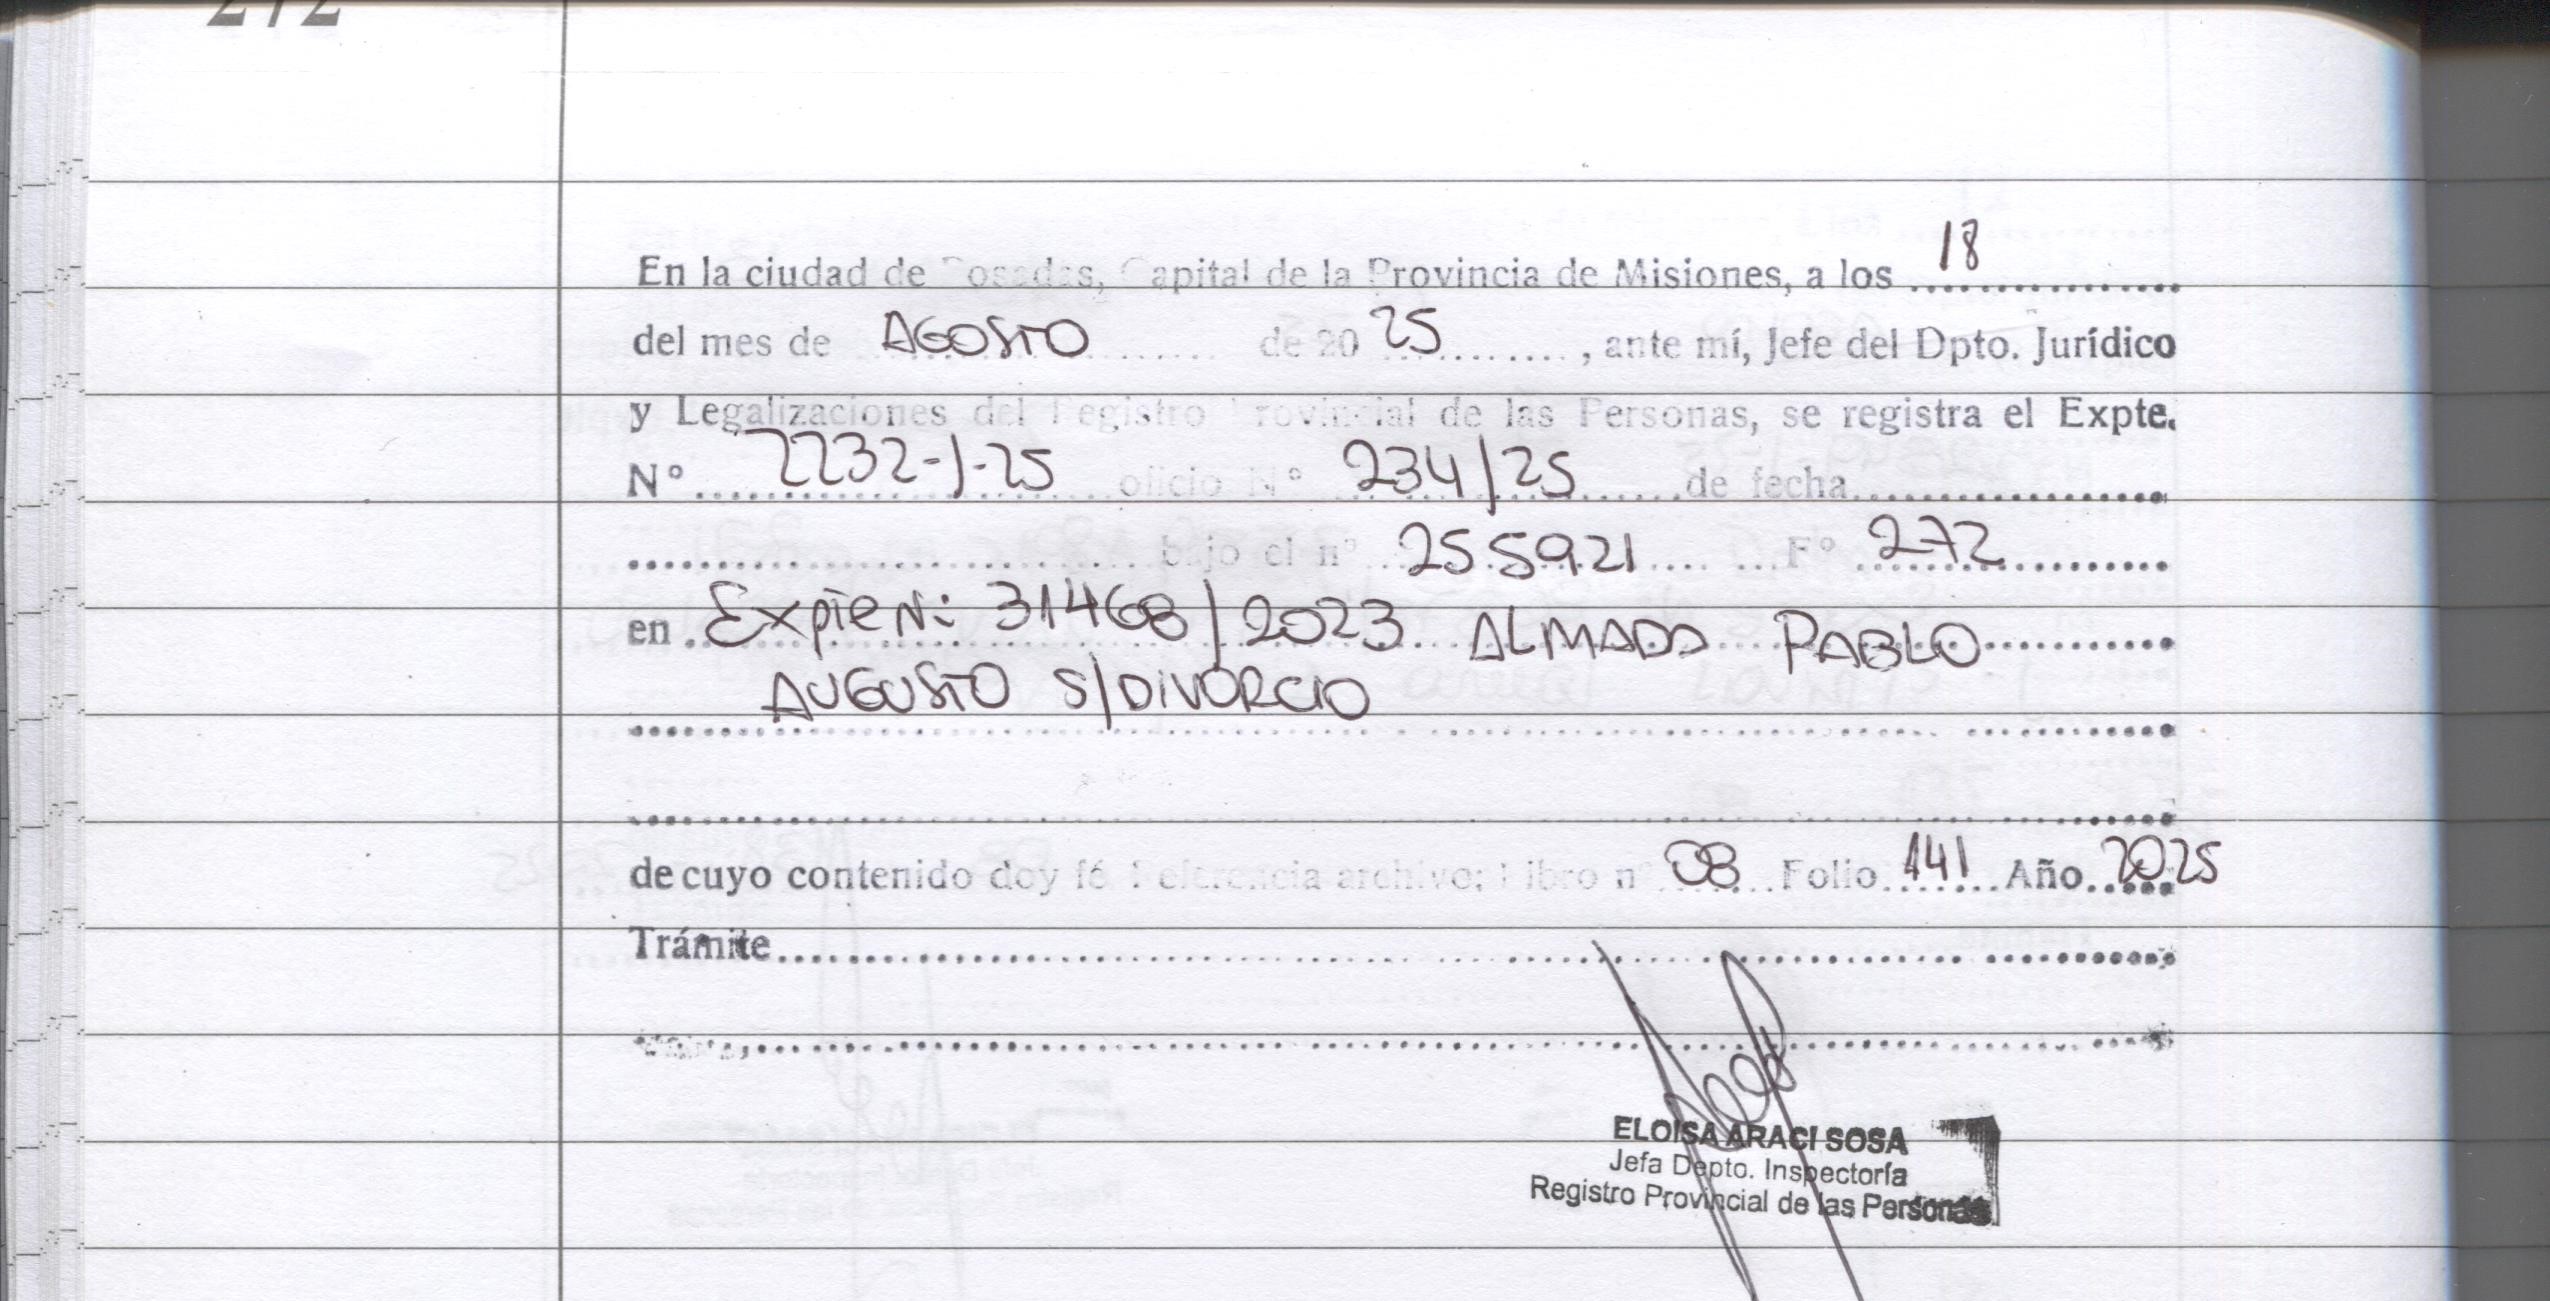 272
En la ciudad de Posadas, Capital de la Provincia de Misiones, a los 18
del mes de AGOSTO de 20 25, ante mí, Jefe del Dpto. Jurídico
y Legalizaciones del Registro Provincial de las Personas, se registra el Expte.
N° 2232-J-25 oficio N° 234/25 de fecha
bajo el n° 255921 F° 272
en Expte N: 31468/2023 ALMADA PABLO
AUGUSTO S/DIVORCIO
de cuyo contenido doy fé Referencia archivo: Libro n° 08 Folio 141 Año 2025
Trámite
ELOISA ARACI SOSA
Jefa Depto. Inspectoría
Registro Provincial de las Personas